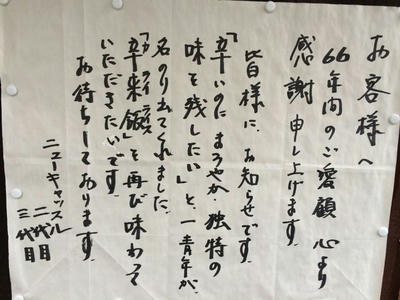 お客様へ
66年間のご愛顧心より
感謝申し上げます
皆様に、お知らせです
「辛いのにまろやか、独特の
味を残したい」と、一青年が、
名のり出てくれました、
「辛来飯」を再び味わって
カライライス
いただきたいです、
お待ちしております
ニューキャッスル
二代目
三代目